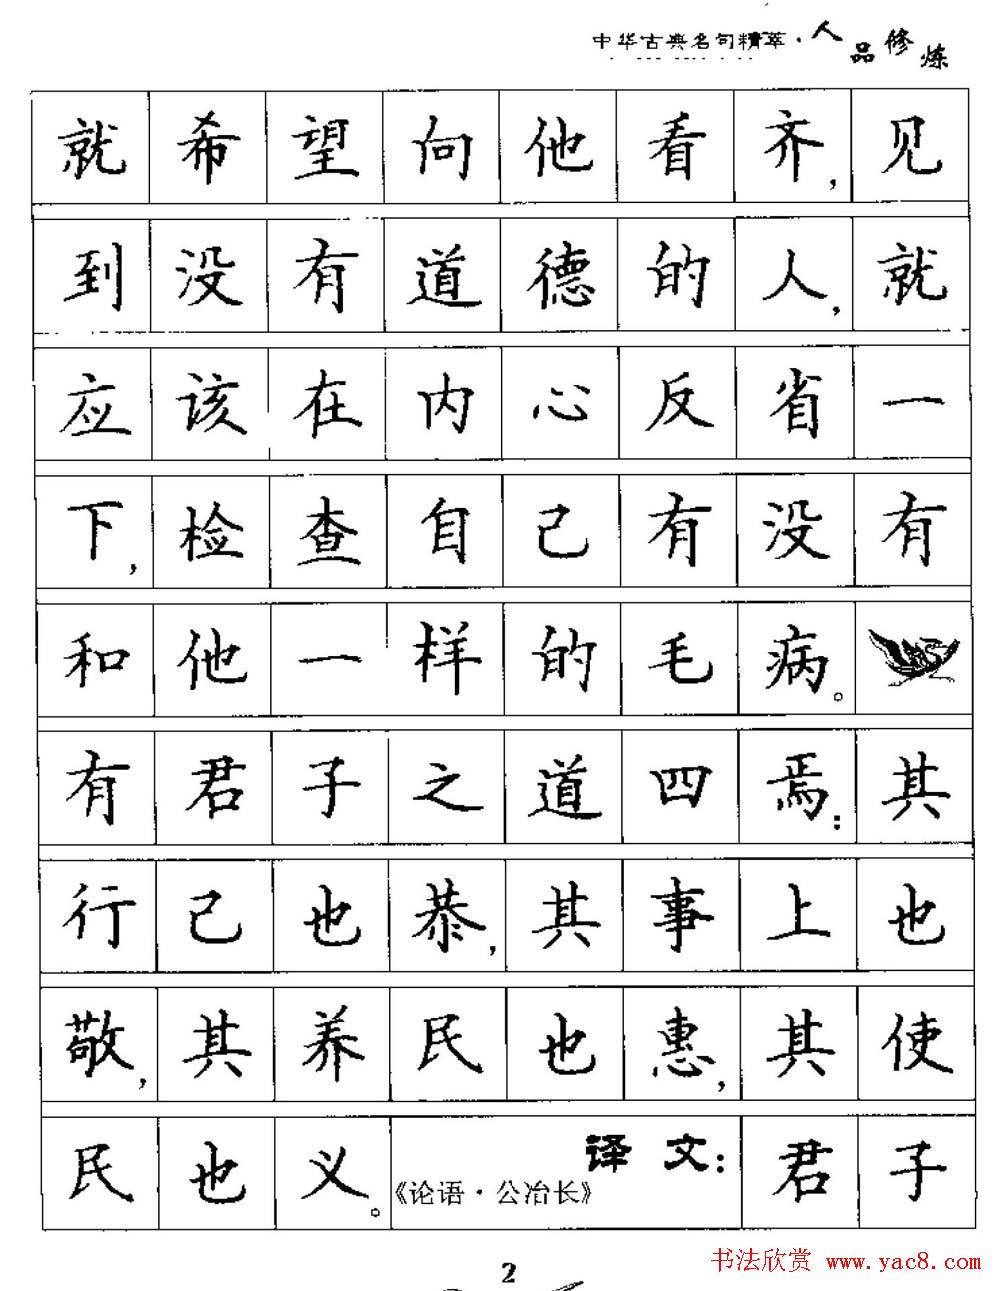 中华古典名句精萃·人品修炼
就希望向他看齐,见
到没有道德的人,就
应该在内心反省一
下,检查自己有没有
和他一样的毛病。
有君子之道四焉:其
行己也恭,其事上也
敬,其养民也惠,其使
民也义。《论语·公冶长》译文:君子
2
书法欣赏 www.yac8.com